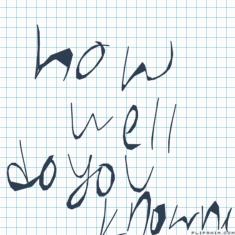 how
well
do you
know m
FLIPANIM.COM